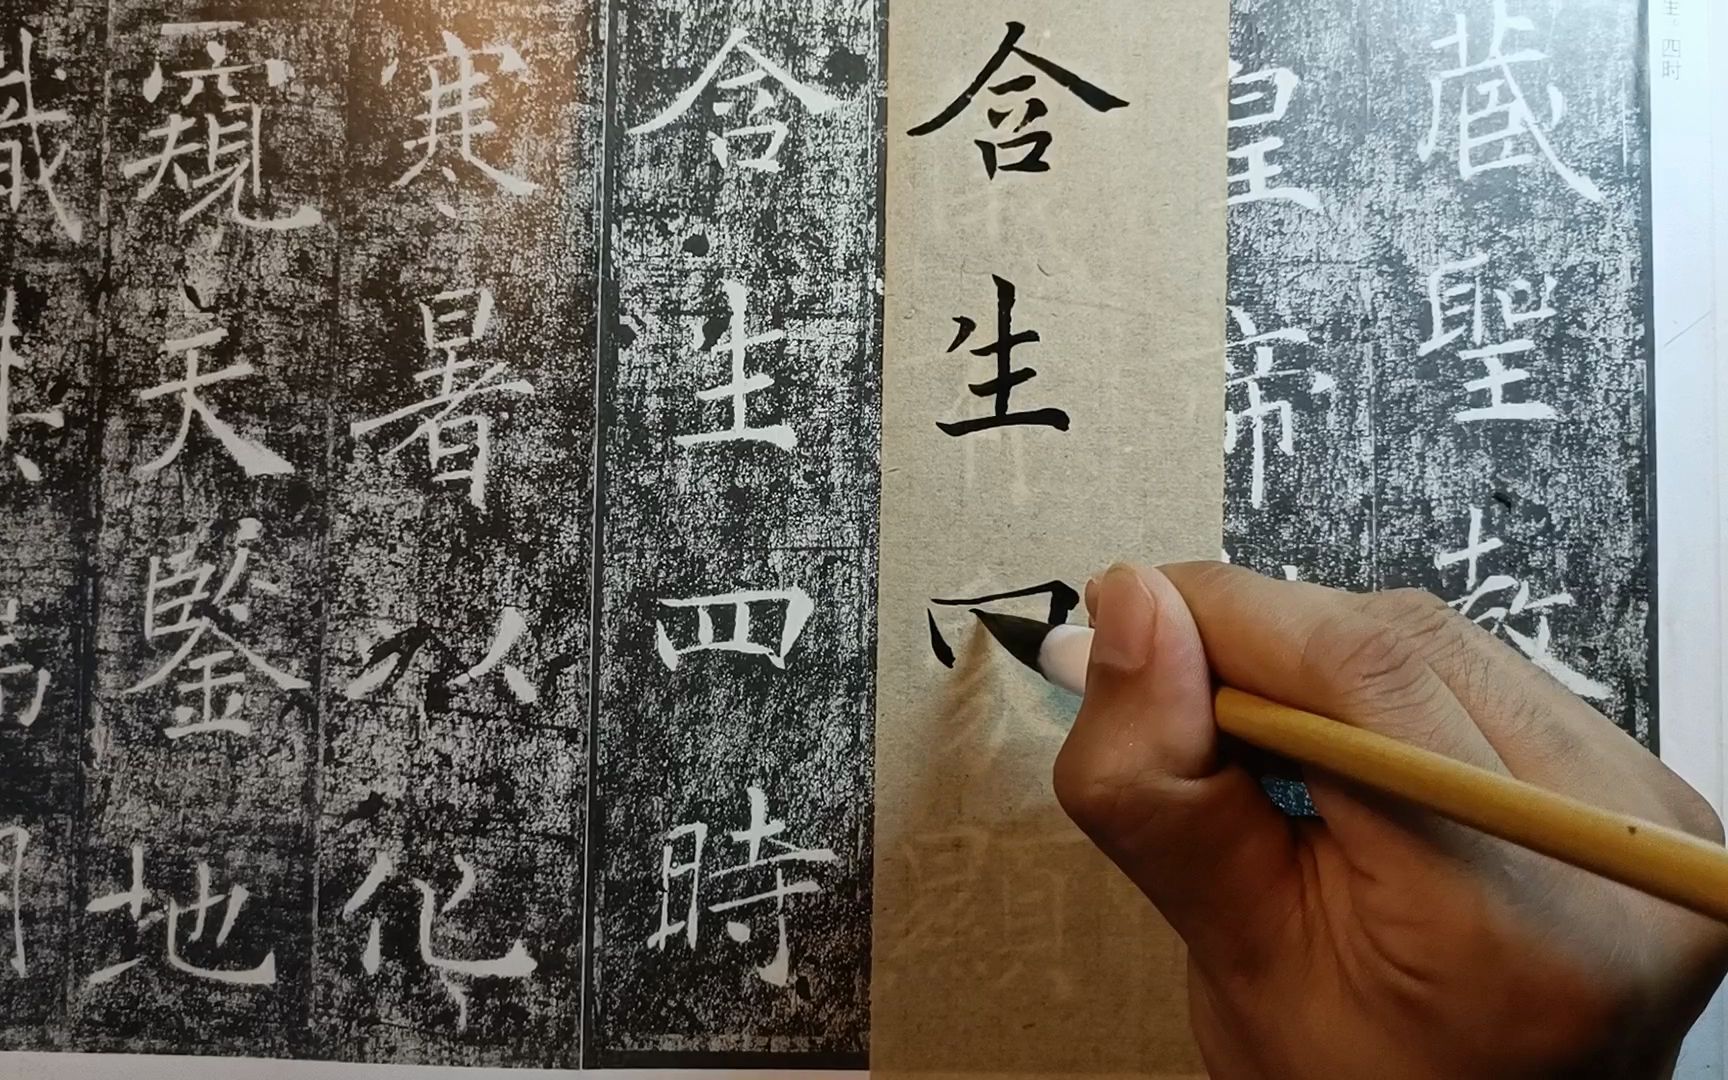 生。四时
藏聖教
皇帝
含生
含生四時
寒暑以化
窺天鑒地